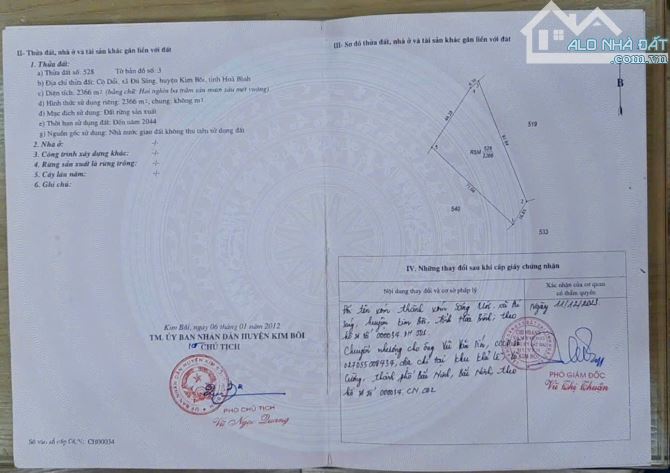 ALO NHÀ ĐẤT
II- Thửa đất, nhà ở và tài sản khác gắn liền với đất
1. Thửa đất:
a) Thửa đất số: 528 Tờ bản đồ số: 3
b) Địa chỉ thửa đất: Cọ Dối, xã Đú Sáng, huyện Kim Bôi, tỉnh Hoà Bình
c) Diện tích: 2366 m² (bằng chữ: Hai nghìn ba trăm sáu mươi sáu mét vuông)
d) Hình thức sử dụng riêng: 2366 m²; chung: không m²
đ) Mục đích sử dụng: Đất rừng sản xuất
e) Thời hạn sử dụng đất: Đến năm 2044
g) Nguồn gốc sử dụng: Nhà nước giao đất không thu tiền sử dụng đất
2. Nhà ở: -/-
3. Công trình xây dựng khác: -/-
4. Rừng sản xuất là rừng trồng: -/-
5. Cây lâu năm: -/-
6. Ghi chú:
Kim Bôi, ngày 06 tháng 01 năm 2012
TM. ỦY BAN NHÂN DÂN HUYỆN KIM BÔI
CHỦ TỊCH
PHÓ CHỦ TỊCH
Vũ Ngọc Dương
Số vào sổ cấp GCN: CH00034
III- Sơ đồ thửa đất, nhà ở và tài sản khác gắn liền với đất
B
519
RSM 528
2366
540
533
IV. Những thay đổi sau khi cấp giấy chứng nhận
Nội dung thay đổi và cơ sở pháp lý
Xác nhận của cơ quan
có thẩm quyền
tên xóm thành xóm Sáng xã Đú
Sáng, huyện Kim Bôi, tỉnh Hòa Bình; theo
hồ sơ số 000034
Chuyển nhượng cho ông Vũ Văn
027055008434, địa chỉ tại khu
Cường, thành phố Bắc Ninh, Bắc Ninh, theo
hồ sơ số 000034. CN.002
Ngày 11/12/2023
PHÓ GIÁM ĐỐC
Vũ Thị Thuận